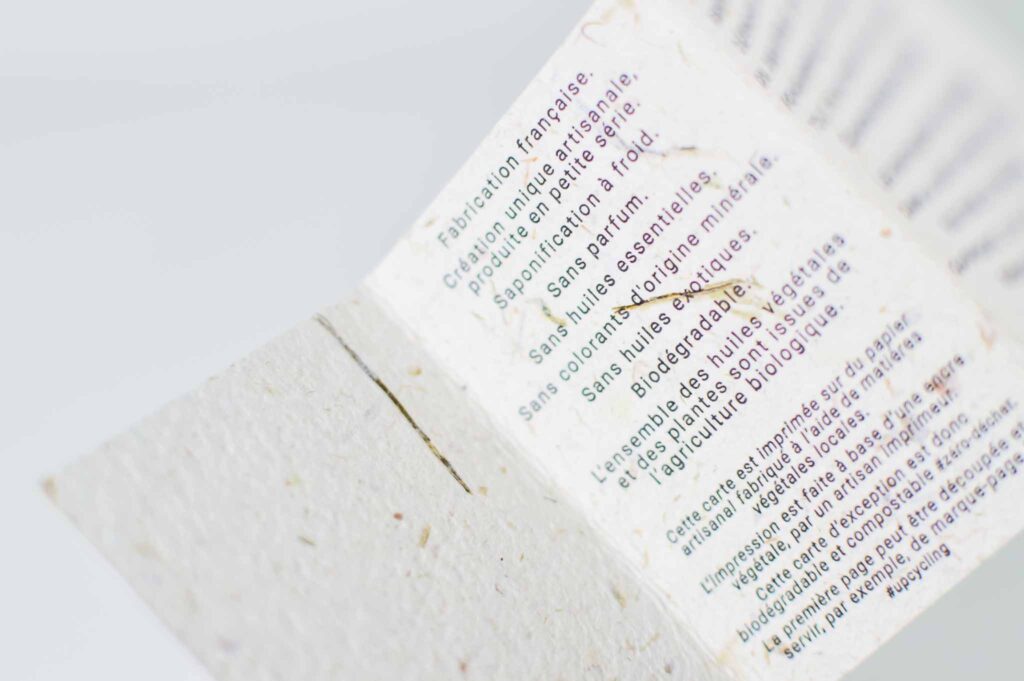 Fabrication française.
Création unique artisanale,
produite en petite série.
Saponification à froid.
Sans parfum.
Sans huiles essentielles.
Sans colorants d'origine minérale.
Sans huiles exotiques.
Biodégradable.
L'ensemble des huiles végétales
et des plantes sont issues de
l'agriculture biologique.
Cette carte est imprimée sur du papier
artisanal fabriqué à l'aide de matières
végétales locales.
L'impression est faite à base d'une encre
végétale, par un artisan imprimeur.
Cette carte d'exception est donc
biodégradable et compostable #zero-déchet.
La première page peut être découpée et
servir, par exemple, de marque-page
#upcycling